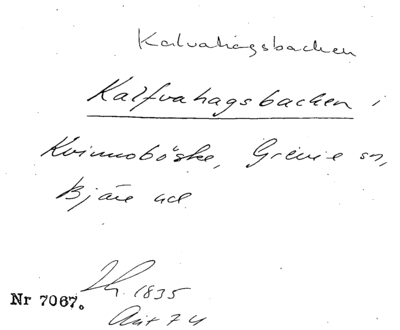 Kalvahagsbacken
Kalfvahagsbacken i
Kvinnoböske, Grevie sn,
Bjäre hd
1835
Nr 7067.
Akt 74